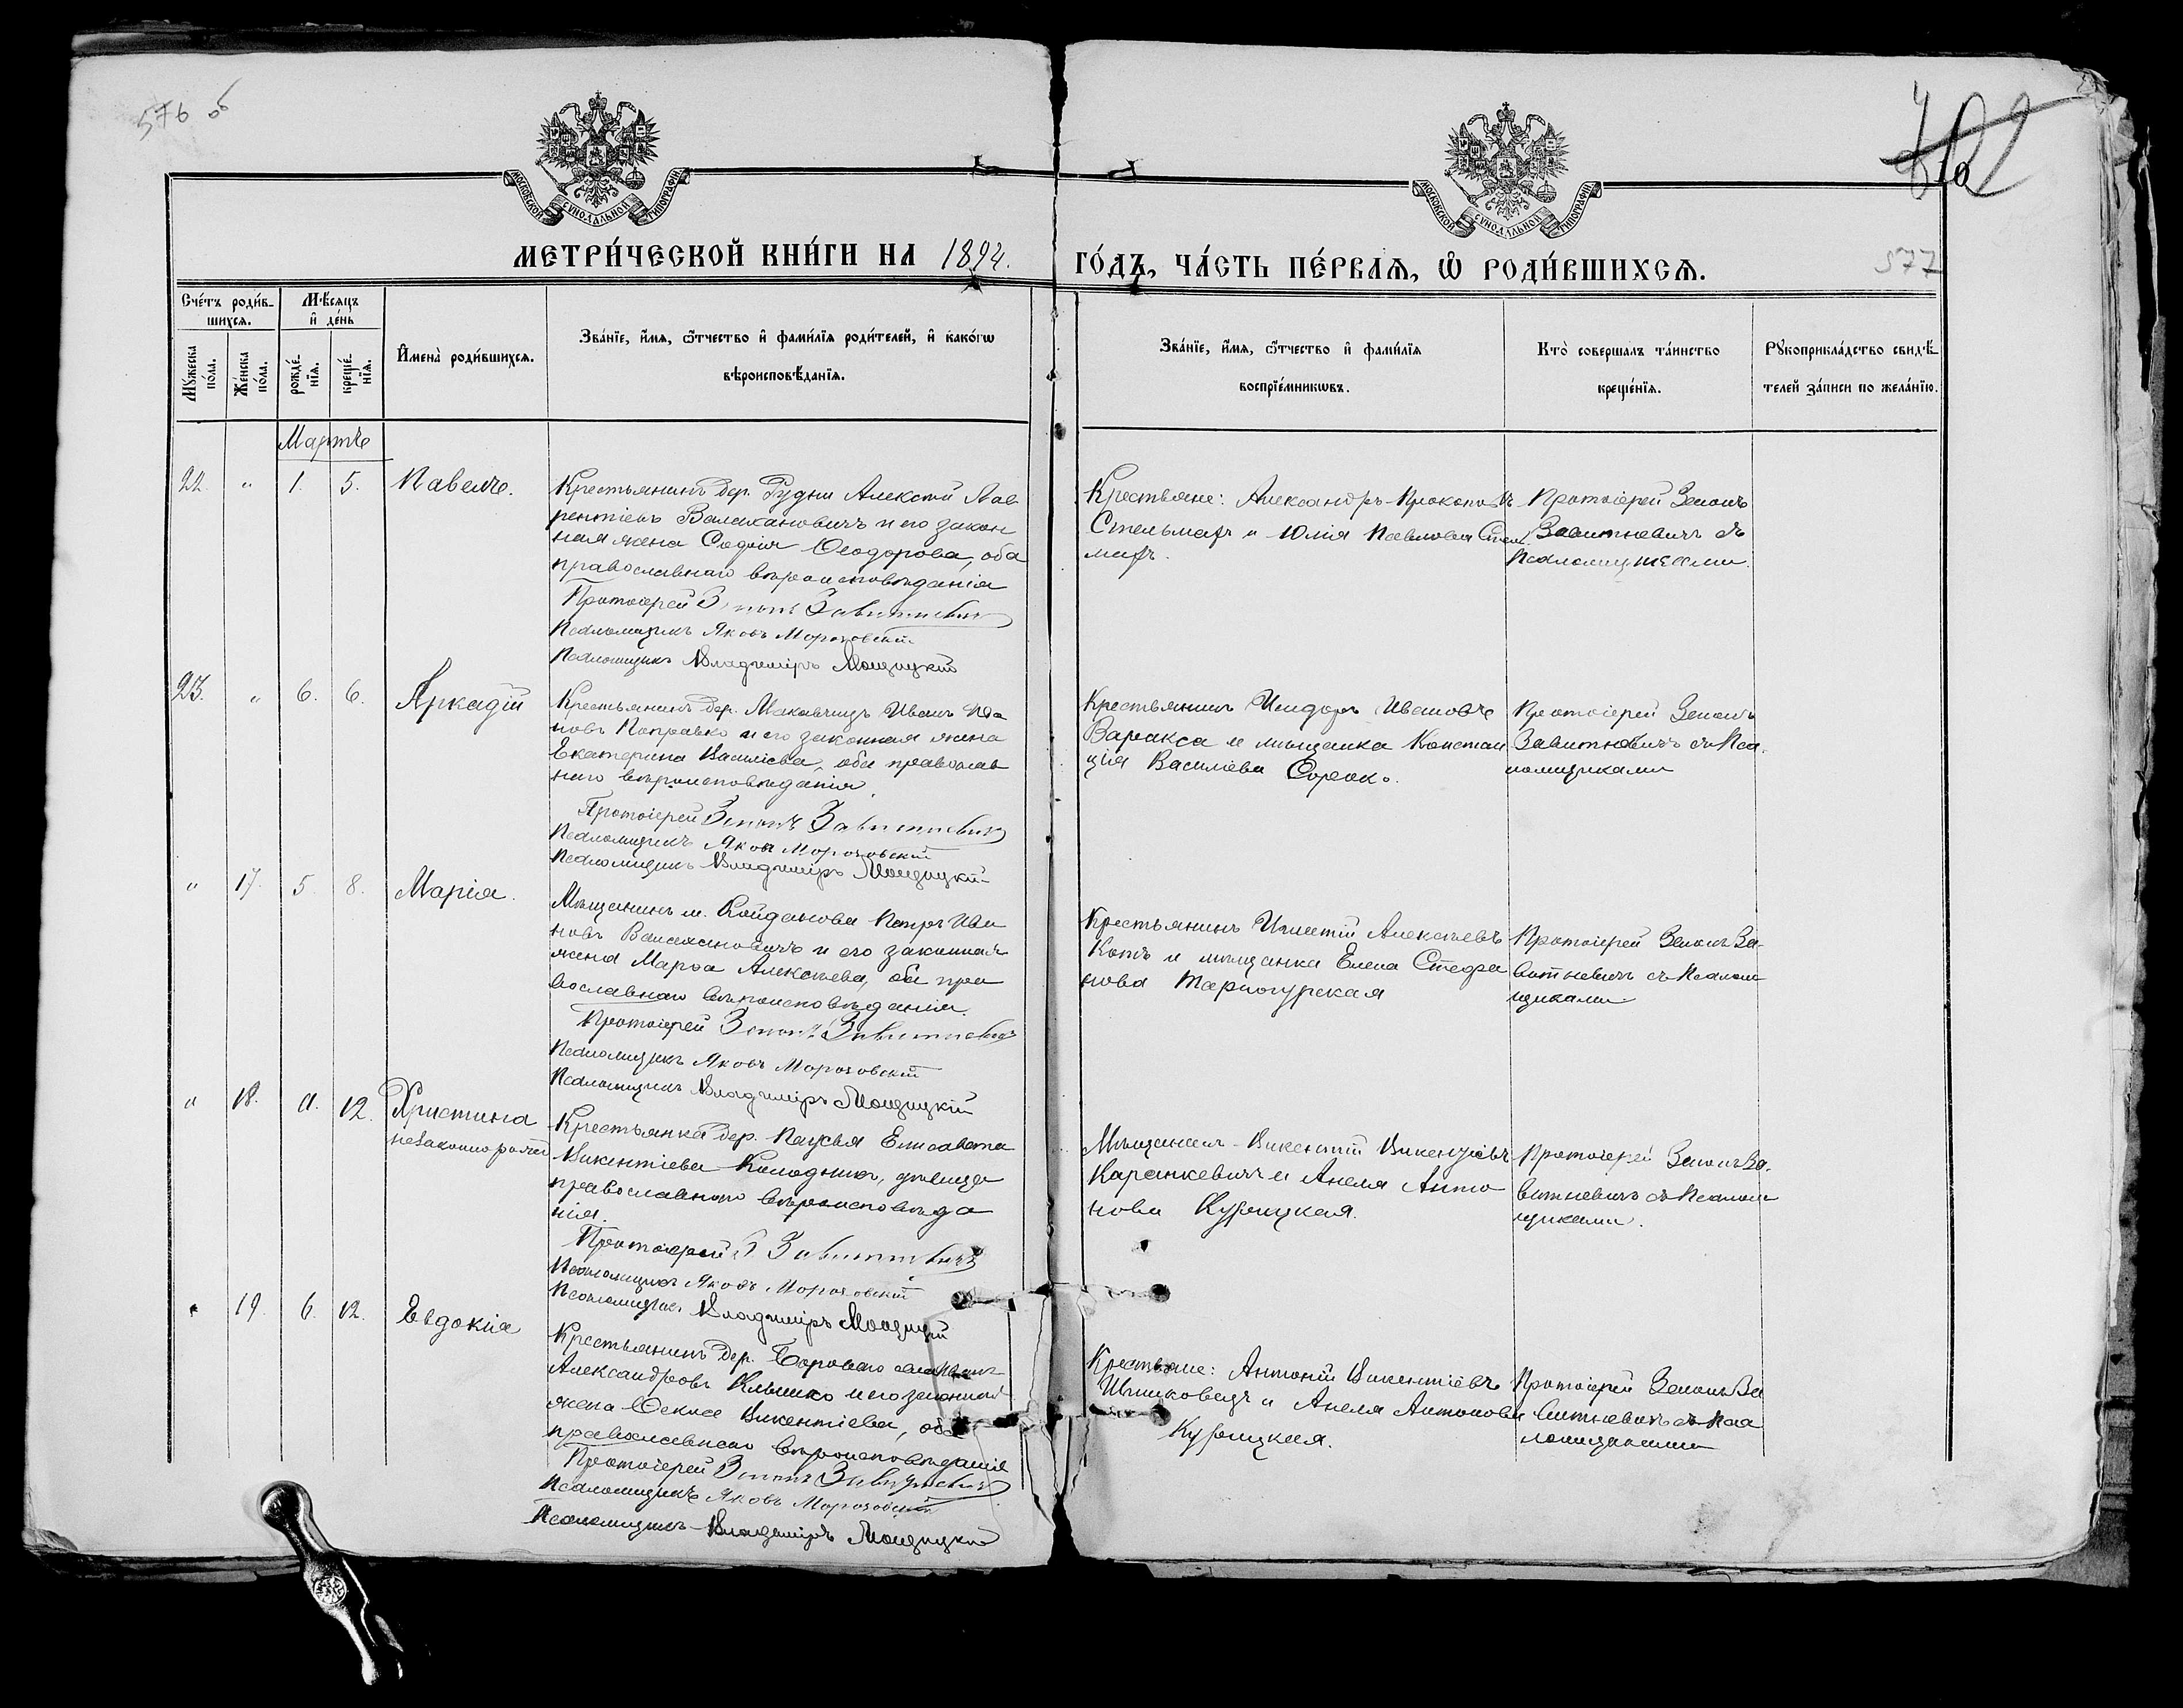 576 об
МОСКОВСКОЙ СѴНОДАЛЬНОЙ ТИПОГРАФІИ
МОСКОВСКОЙ СѴНОДАЛЬНОЙ ТИПОГРАФІИ
МЕТРИ́ЧЕСКОЙ КНИ́ГИ НА 1894.
ГО́ДЪ, ЧА́СТЬ ПЕ́РВАѦ, Ѡ҆ РОДИ́ВШИХСѦ.
577
Сче́тъ роди́в-
шихсѧ.
Мѣ́сѧцъ
и҆ де́нь
Мꙋ́жеска по́ла.
Же́нска по́ла.
рожде́-
нїѧ.
креще́-
нїѧ.
И҆мена̀ роди́вшихсѧ.
Зва́нїе, и҆́мѧ, ѻ҆́тчество и҆ фами́лїѧ роди́телей, и҆ како́гѡ
вѣроисповѣ́данїѧ.
Зва́нїе, и҆́мѧ, ѻ҆́тчество и҆ фами́лїѧ
воспрїе́мникѡвъ.
Кто̀ соверша́лъ та́инство
креще́нїѧ.
Рꙋкоприкла́дство свидѣ́-
телей за́писи по жела́нїю.
Мартъ
22. " 1. 5. Павелъ.
Крестьянинъ дер. Рудни Алексѣй Лав
рентіевъ Валахановичъ и его закон
ная жена Софія Ѳеодорова, оба
православнаго вѣроисповѣданія
Протоіерей Зенонъ Завитневичъ
Псаломщикъ Яковъ Морозовскій
Псаломщикъ Владиміръ Мощицкій
Крестьяне: Александръ Прокоповъ
Стельмахъ и Юлія Павлова Стель
махъ.
Протоіерей Зенонъ
Завитневичъ съ
Псаломщиками.
23. " 6. 6. Аркадій
Крестьянинъ дер. Макавчицъ Иванъ Ива
новъ Поправко и его законная жена
Екатерина Василіева, оба православ
наго вѣроисповѣданія.
Протоіерей Зенонъ Завитневичъ
Псаломщикъ Яковъ Морозовскій
Псаломщикъ Владиміръ Мощицкій
Крестьянинъ Исидоръ Ивановъ
Варакса и мѣщанка Констан
ція Василіева Сороко.
Протоіерей Зенонъ
Завитневичъ съ Пса
ломщиками
" 17. 5. 8. Марія.
Мѣщанинъ м. Койданова Петръ Ива
новъ Валахановичъ и его законная
жена Марѳа Алексѣева, оба пра
вославнаго вѣроисповѣданія.
Протоіерей Зенонъ Завитневичъ
Псаломщикъ Яковъ Морозовскій
Псаломщикъ Владиміръ Мощицкій
Крестьянинъ Игнатій Алексѣевъ
Котъ и мѣщанка Елена Стефа
нова Тарногурская
Протоіерей Зенонъ За-
витневичъ съ Псалом
щиками
" 18. 12. Христина
незаконорожд
Крестьянка дер. Паусья Елисавета
Викентіева Колодникъ, дѣвица
православнаго вѣроисповѣда
нія.
Протоіерей З. Завитневичъ
Псаломщикъ Яковъ Морозовскій
Псаломщикъ Владиміръ Мощицкій
Мѣщане: Викентій Викентіевъ
Каранкевичъ и Анеля Анто
нова Курницкая.
Протоіерей Зенонъ За-
витневичъ съ Псалом
щиками.
" 19. 6. 12. Евдокія
Крестьянинъ дер.
Александровъ Клышко и его законная
жена Ѳекла Викентіева, оба
православнаго вѣроисповѣданія
Протоіерей Зенонъ Завитневичъ
Псаломщикъ Яковъ Морозовскій
Псаломщикъ Владиміръ Мощицкій
Крестьяне: Антоній Викентіевъ
и Анеля Антонова
Курницкая.
Протоіерей Зенонъ За
витневичъ съ Пса
ломщиками